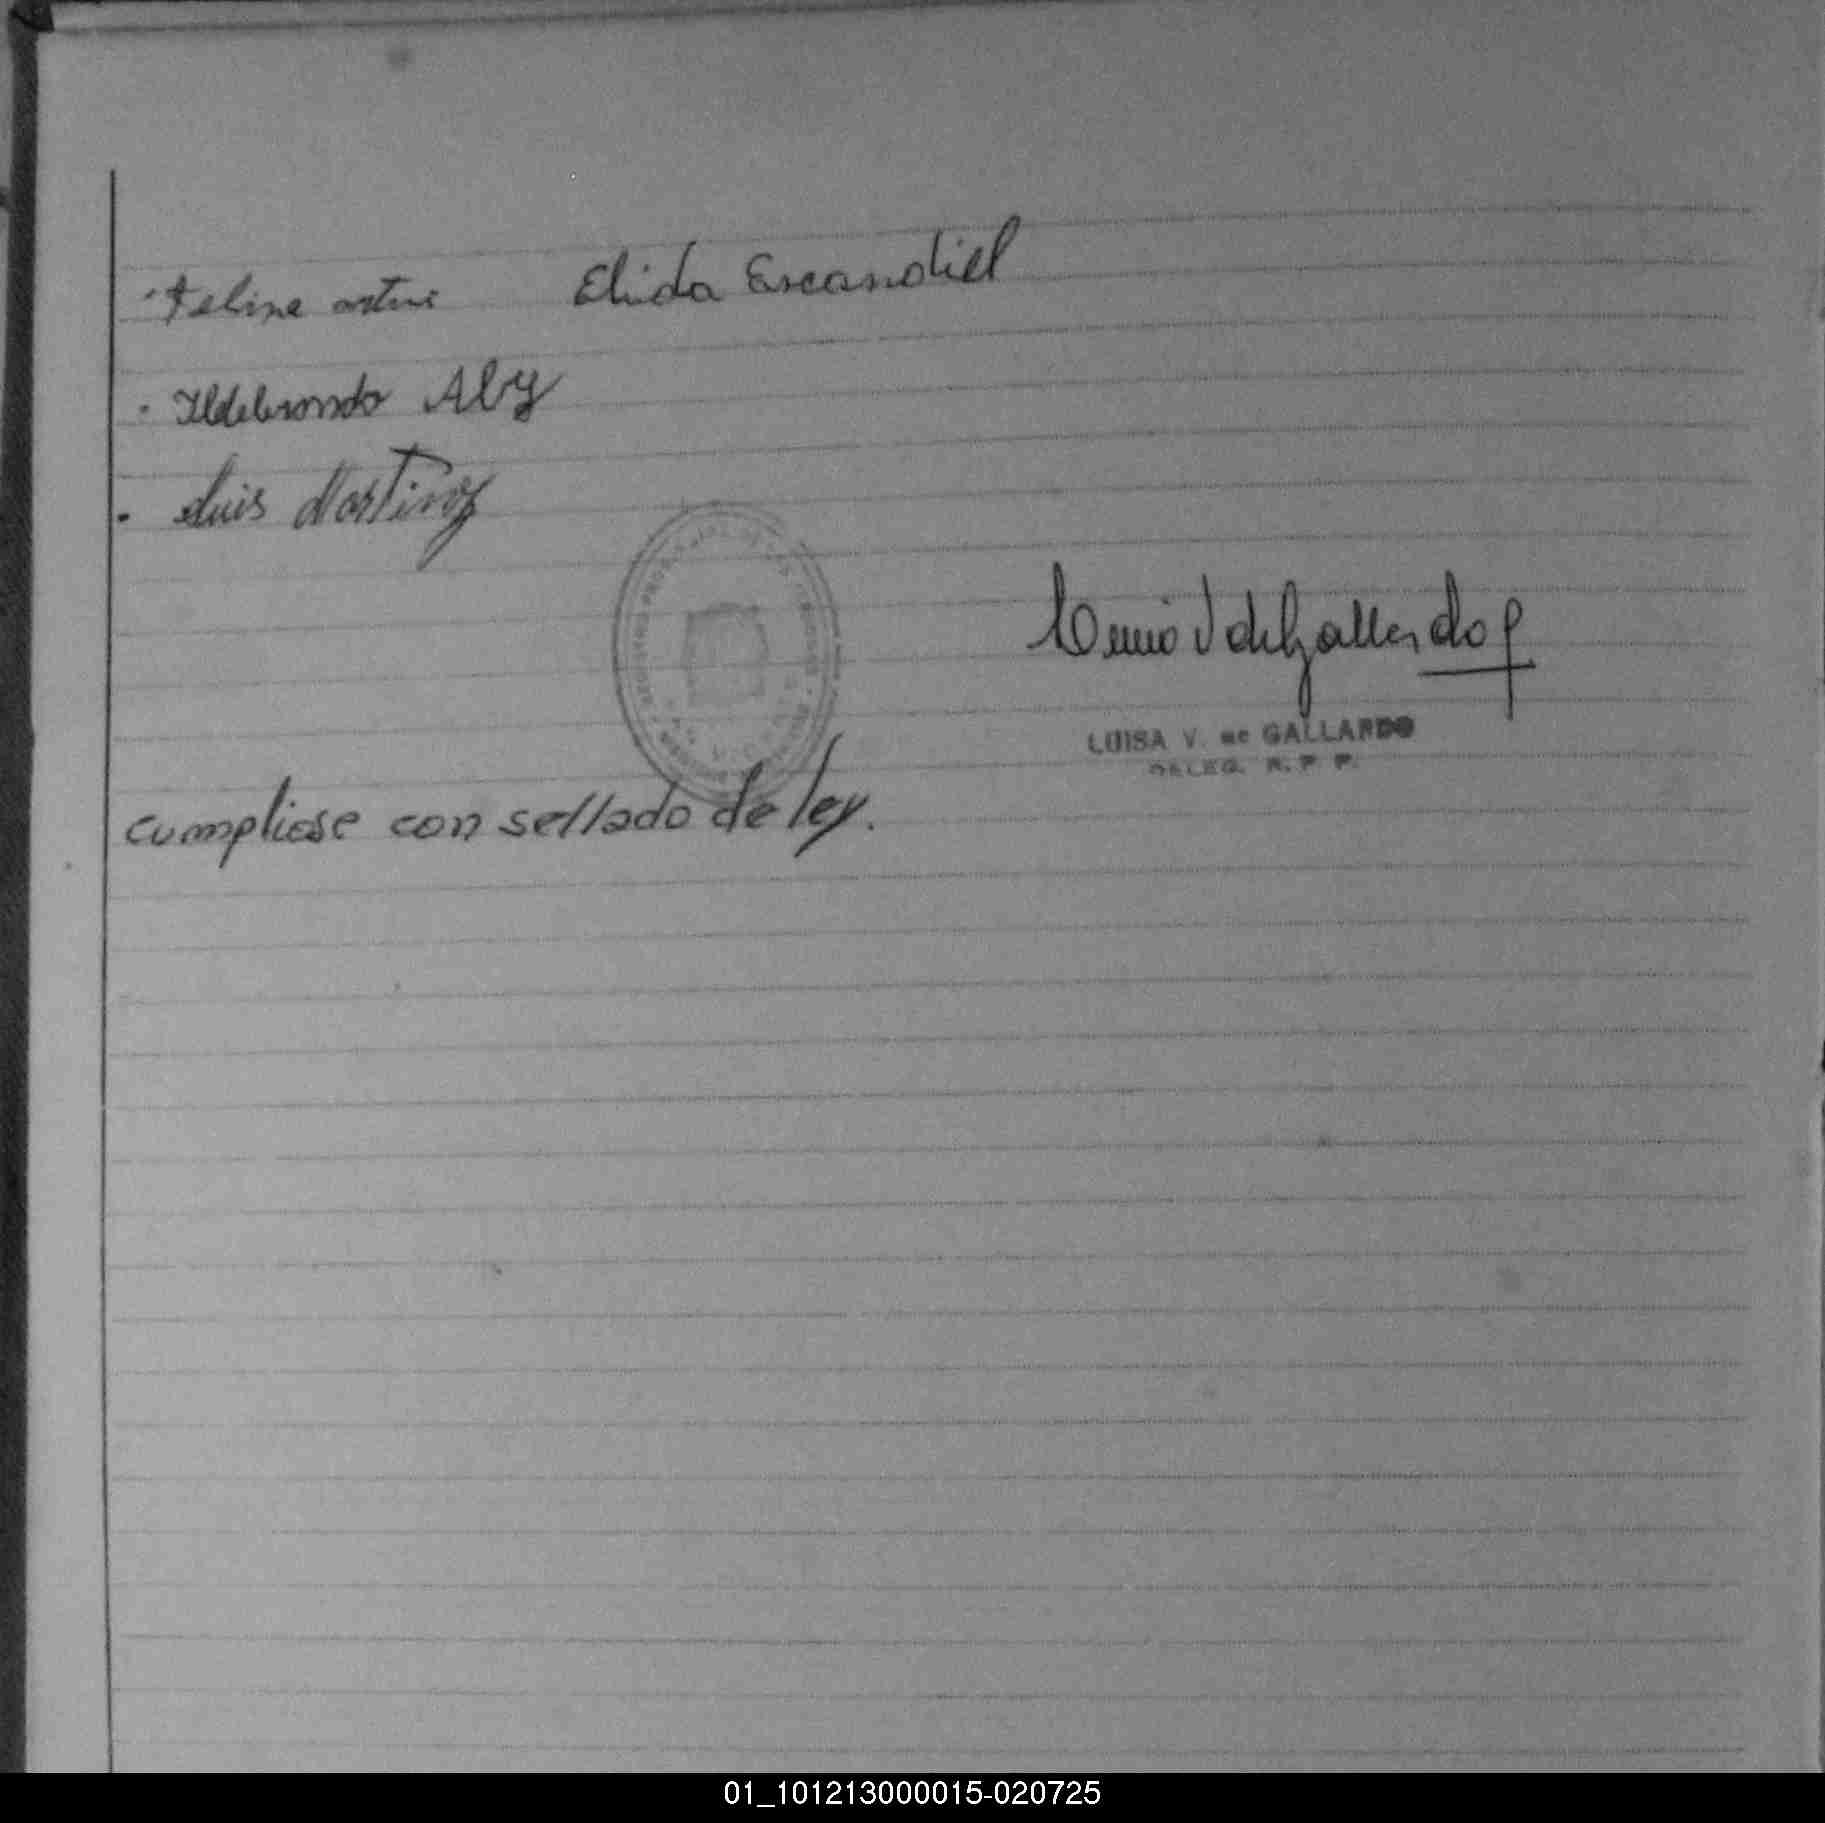 Felipe Elida Escandiel
Ildebrando Aly
Luis Martinez
Luisa V de Gallardo
LUISA V. de GALLARDO
DELEG. R. P. P.
cumpliose con sellado de ley.
01_101213000015-020725